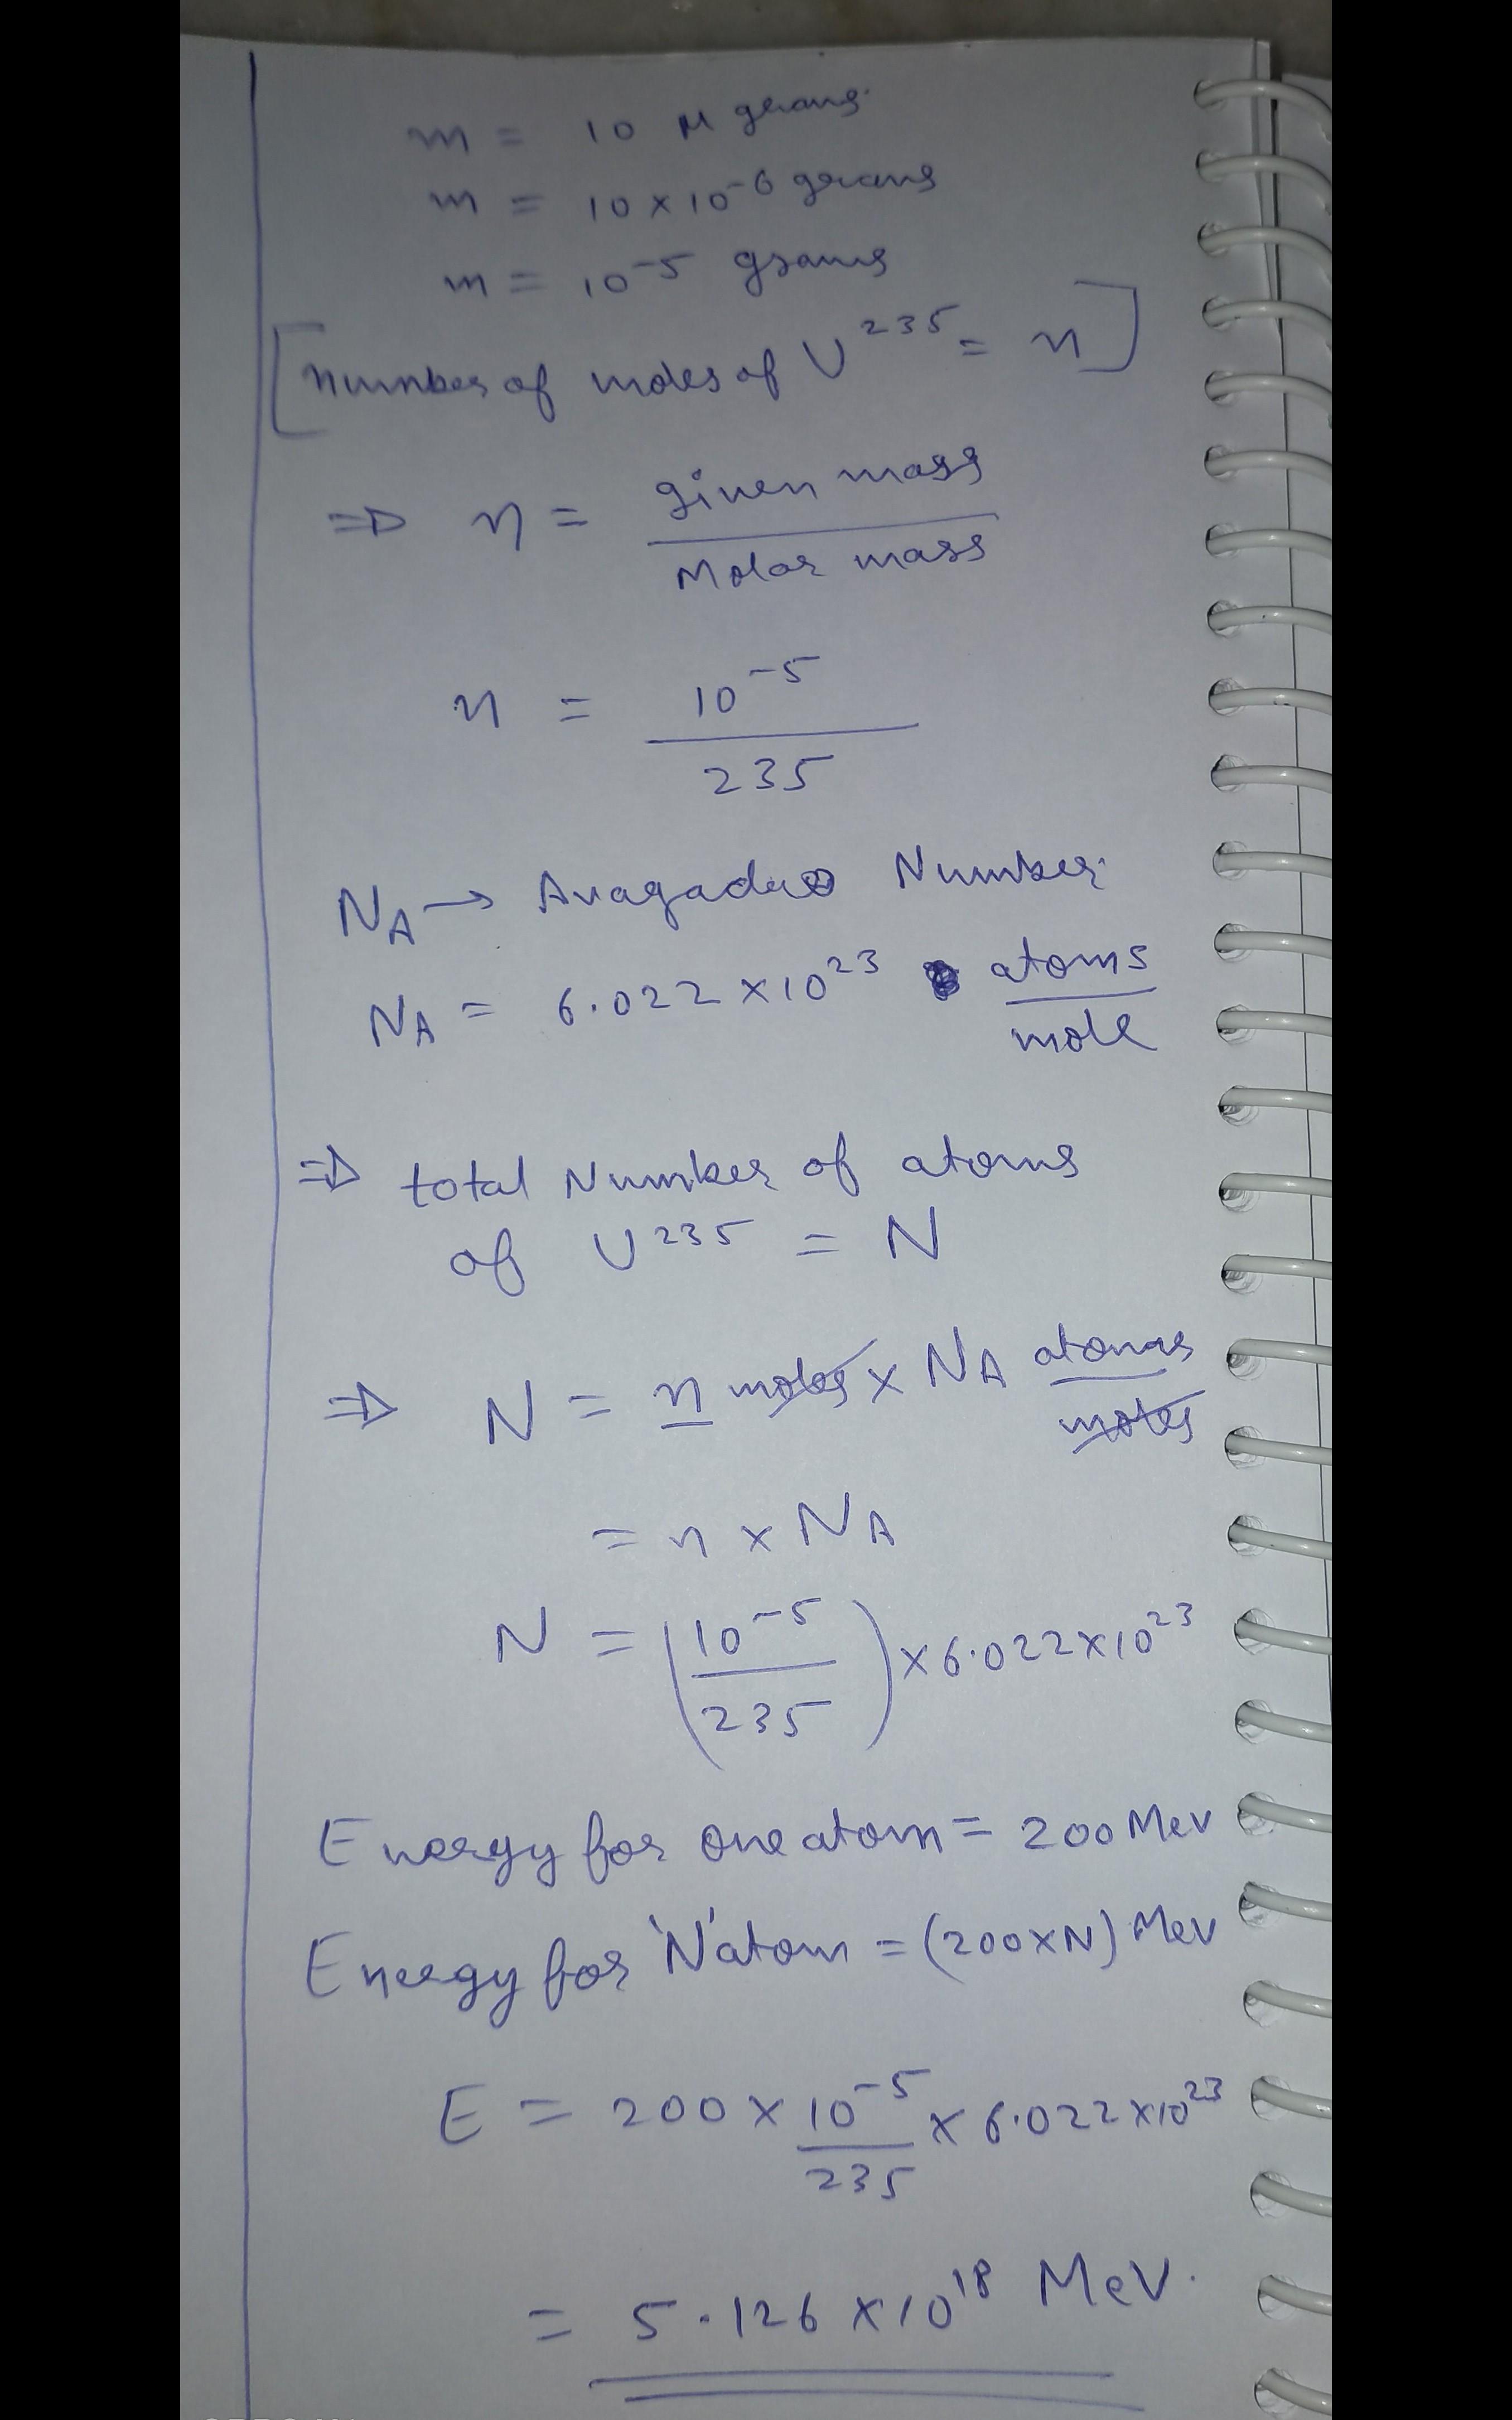 m = 10 μ grams.
m = 10 × 10⁻⁶ grams
m = 10⁻⁵ grams
[Number of moles of U²³⁵ = n]
⇒ n = given mass
Molar mass
n = 10⁻⁵
235
N_A → Avagadro Number.
N_A = 6.022 × 10²³ atoms
mole
⇒ total Number of atoms
of U²³⁵ = N
⇒ N = n moles × N_A atoms
moles
= n × N_A
N = (10⁻⁵ / 235) × 6.022 × 10²³
Energy for one atom = 200 Mev
Energy for 'N' atom = (200 × N) Mev
E = 200 × 10⁻⁵ × 6.022 × 10²³
235
= 5.126 × 10¹⁸ MeV.